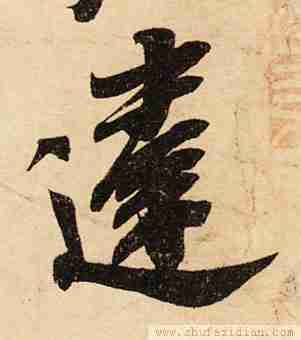 達
www.shufazidian.com